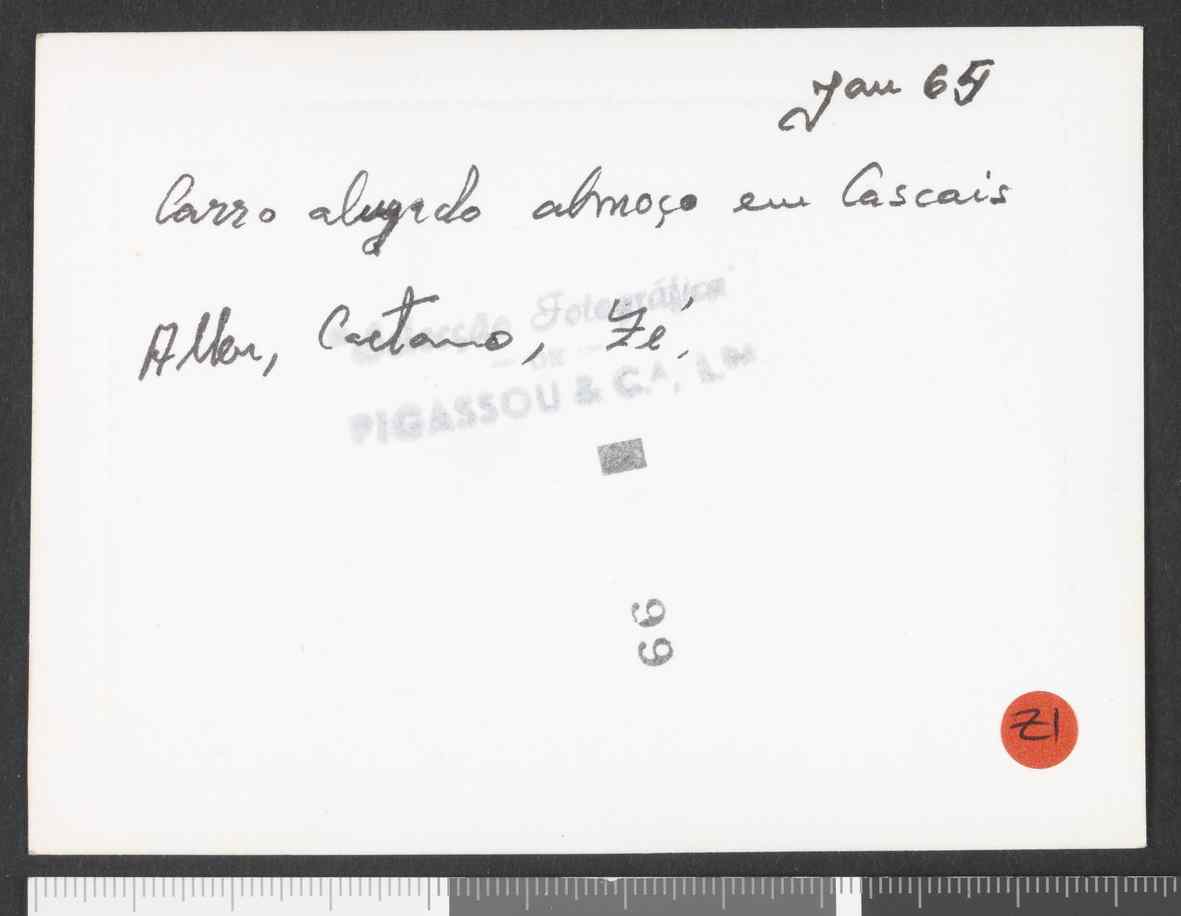 Jan 65
Carro alugado almoço em Cascais
Allen, Caetano, Zé,
Secção Fotográfica
DE
PIGASSOU & C.ª, L.da
66
Z1